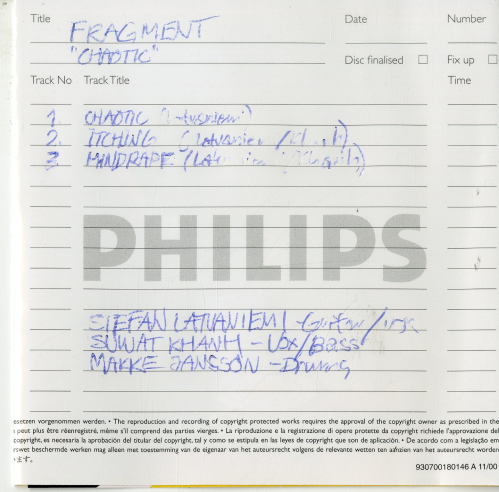 Title Date Number
FRAGMENT
"CHAOTIC"
Disc finalised Fix up
Track No Track Title Time
1. CHAOTIC
2. ITCHING (Latvaniemi / Khanh)
3. MINDRAPE
PHILIPS
STEFAN LATVANIEMI - Guitar/
SUWAT KHANH - Vox/Bass
MAKKE JANSSON - Drums
esetzen vorgenommen werden. • The reproduction and recording of copyright protected works requires the approval of the copyright owner as prescribed in the
peut plus être réenregistré, même s'il comprend des parties vierges. • La riproduzione e la registrazione di opere protette da copyright richiede l'approvazione del
copyright, es necesaria la aprobación del titular del copyright, tal y como se estipula en las leyes de copyright que son de aplicación. • De acordo com a legislação em
rswet beschermde werken mag alleen met toestemming van de eigenaar van het auteursrecht volgens de relevante wetten ten aanzien van het auteursrecht worden
ます。
930700180146 A 11/00